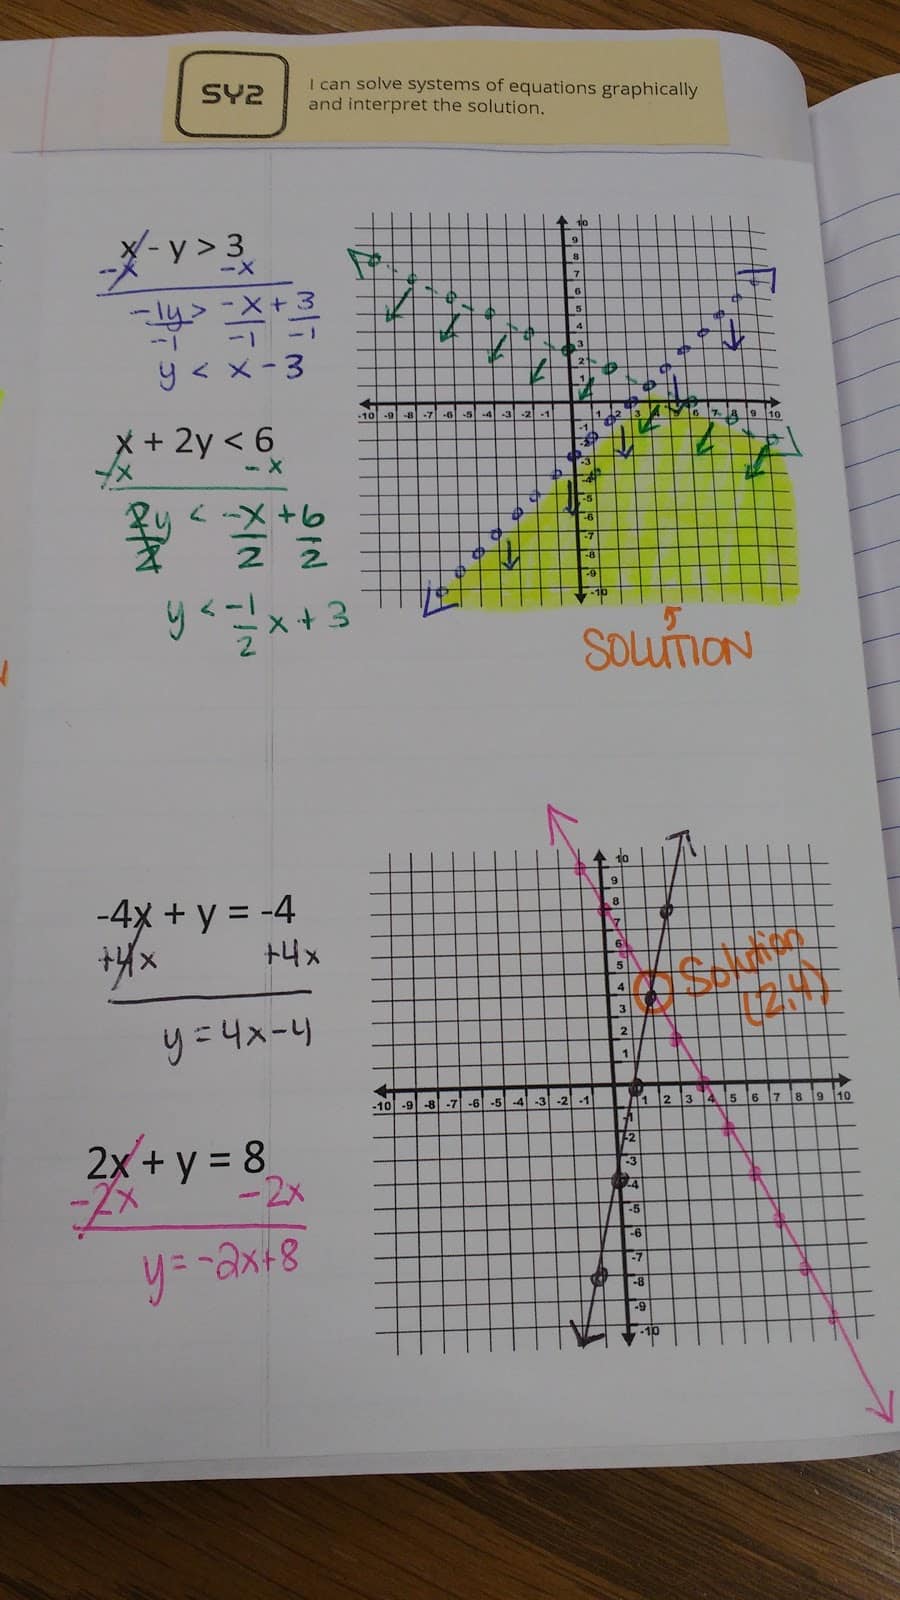 SY2
I can solve systems of equations graphically
and interpret the solution.
x - y > 3
-x -x
-1y > -x + 3
-1 -1 -1
y < x - 3
x + 2y < 6
-x -x
2y < -x + 6
2 2 2
y < -1 x + 3
2
10
9
8
7
6
5
4
3
2
1
-10 -9 -8 -7 -6 -5 -4 -3 -2 -1 1 2 3 4 5 6 7 8 9 10
-1
-2
-3
-4
-5
-6
-7
-8
-9
-10
SOLUTION
-4x + y = -4
+4x +4x
y = 4x - 4
2x + y = 8
-2x -2x
y = -2x + 8
10
9
8
7
6
5
4
3
2
1
Solution
(2,4)
-10 -9 -8 -7 -6 -5 -4 -3 -2 -1 1 2 3 4 5 6 7 8 9 10
-1
-2
-3
-4
-5
-6
-7
-8
-9
-10